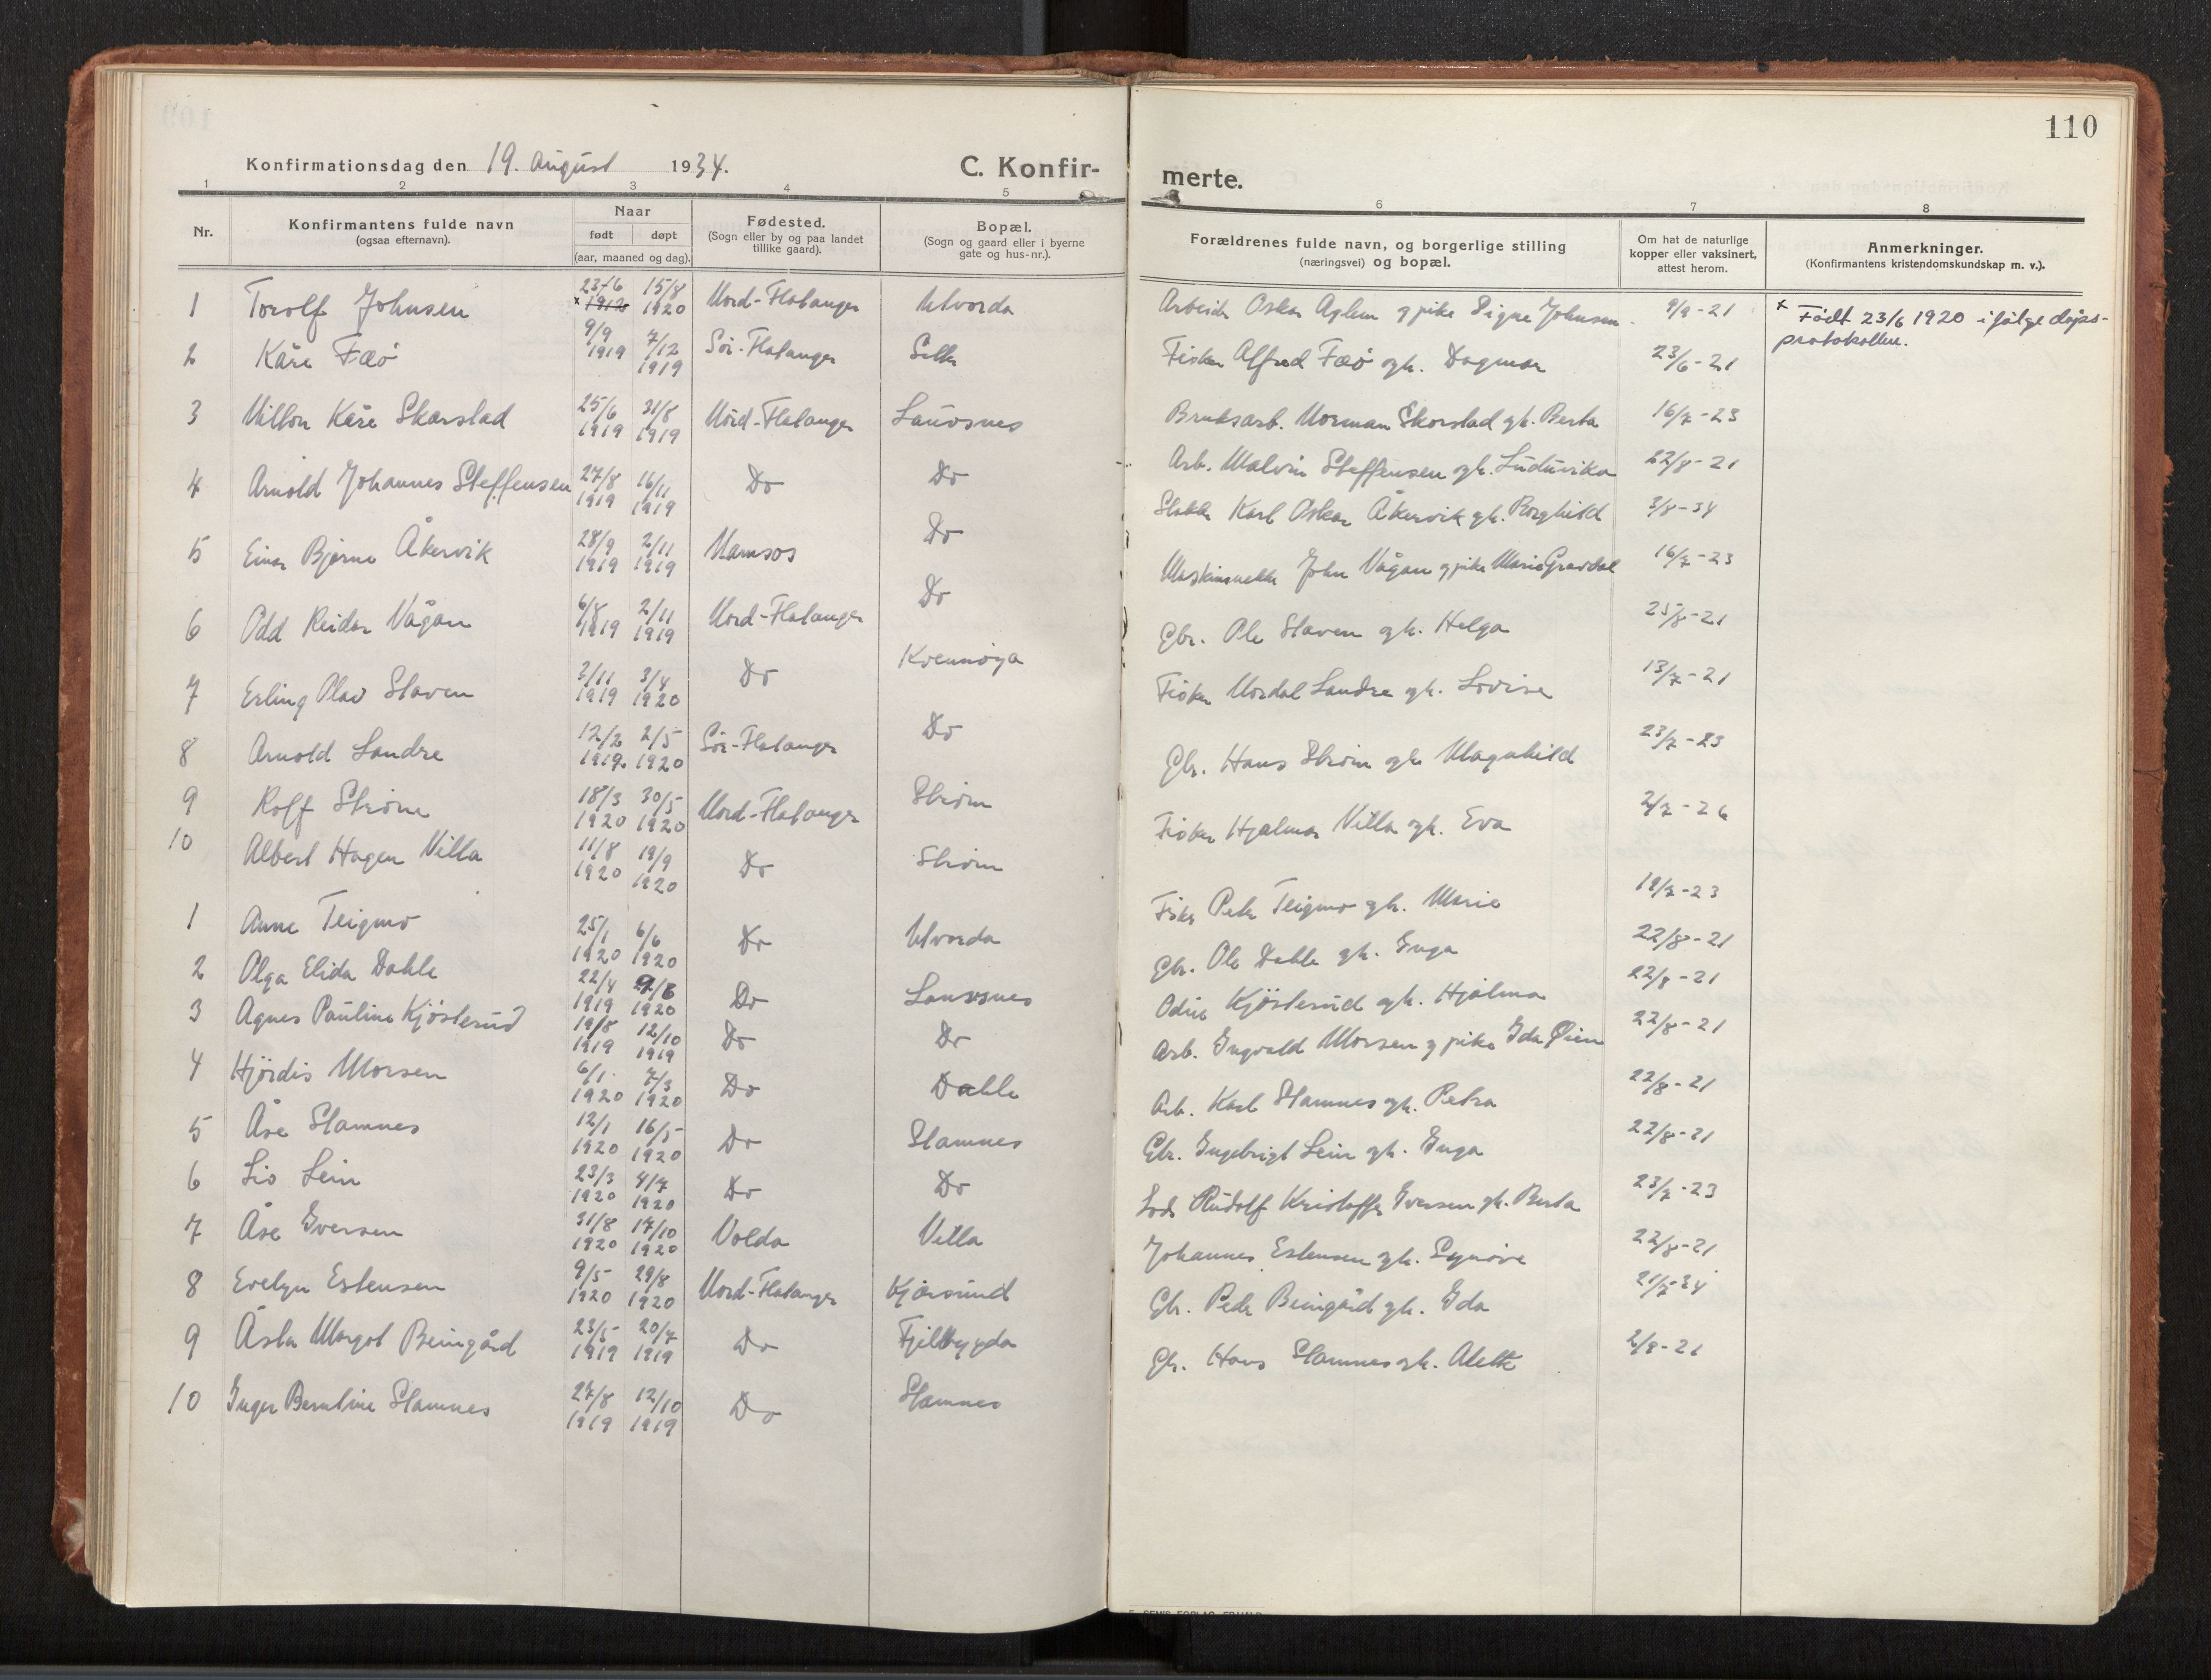 110
Konfirmationsdag den 19. august 1934.
C. Konfir-
merte.
1 2 3 4 5 6 7 8
Nr.
Konfirmantens fulde navn
(ogsaa efternavn).
Naar
født døpt
(aar, maaned og dag).
Fødested.
(Sogn eller by og paa landet
tillike gaard).
Bopæl.
(Sogn og gaard eller i byerne
gate og hus-nr.).
Forældrenes fulde navn, og borgerlige stilling
(næringsvei) og bopæl.
Om hat de naturlige
kopper eller vaksinert,
attest herom.
Anmerkninger.
(Konfirmantens kristendomskundskap m. v.).
1 Torolf Johnsen 23/6 × 1912 15/8 1920 Nord-Flatanger Utvorda Arbeider Oskar Aglen og pike Signe Johnsen. 9/9-21 × Født 23/6 1920 ifølge dåps-
protokollen.
2 Kåre Fæø 9/9 1919 7/12 1919 Sør-Flatanger Sitter Fisker Alfred Fæø gh. Dagmar 23/6-21
3 Kåre Skorstad 25/6 1919 31/8 1919 Nord-Flatanger Lauvsnes Bruksarb. Norman Skorstad gh. Berta 16/7-23
4 Arnold Johannes Steffensen 27/8 1919 16/11 1919 Do Do Arb. Malvin Steffensen gh. Luduvika 22/8-21
5 Einar Bjarne Åkervik 28/9 1919 2/11 1919 Namsos Do Karl Oskar Åkervik gh. Borghild 3/8-34
6 Odd Reidar Vågan 6/8 1919 2/11 1919 Nord-Flatanger Do John Vågan og pike Marie Gravdal 16/7-23
7 Erling Olav Staven 3/11 1919 3/4 1920 Do Kvennøya Gbr. Ole Staven gh. Helga 25/8-21
8 Arnold Landre 12/2 1919. 2/5 1920 Sør-Flatanger Do Fisker Nordal Landre gh. Lovise 13/7-21
9 Rolf Strøm 18/3 1920 30/5 1920 Nord-Flatanger Strøm Gbr. Hans Strøm gh Magnhild 23/7-23
10 Albert Hagen Villa 11/8 1920 19/9 1920 Do Strøm Fisker Hjalmar Villa gh. Eva 2/7-26
1 Anne Teigmo 25/1 1920 6/6 1920 Do Utvorda Fisker Peter Teigmo gh. Marie 19/7-23
2 Olga Elida Dahle 22/4 1919 1920 Do Lauvsnes Gbr. Ole Dahle gh. Inga 22/8-21
3 Agnes Pauline Kjøsterud 19/8 1919 12/10 1919 Do Do Odin Kjøsterud gh. Hjalma 22/8-21
4 Hjördis Morsen 6/1 1920 7/3 1920 Do Dahle Arb. Ingvald Morsen og pike Ida Øien 22/8-21
5 Åse Stamnes 12/1 1920 16/5 1920 Do Stamnes Arb. Karl Stamnes gh. Petra 22/8-21
6 Liv Lein 23/3 1920 4/7 1920 Do Do Gbr. Ingebrigt Lein gh. Inga 22/8-21
7 Åse Iversen 31/8 1920 17/10 1920 Volda Villa Lods Rudolf Kristoffer Iversen gh. Berta 23/7-23
8 Evelyn Estensen 9/5 1920 29/8 1920 Nord-Flatanger Kjørsund Johannes Estensen gh. Synøve 22/8-21
9 Åsta Margot Beingård 23/5 1919 20/7 1919 Do Fjellbygda Gbr. Peder Beingård gh. Ida 21/7-34
10 Inger Berntine Stamnes 27/8 1919 12/10 1919 Do Stamnes Gbr. Hans Stamnes gh. Alette 2/9-21